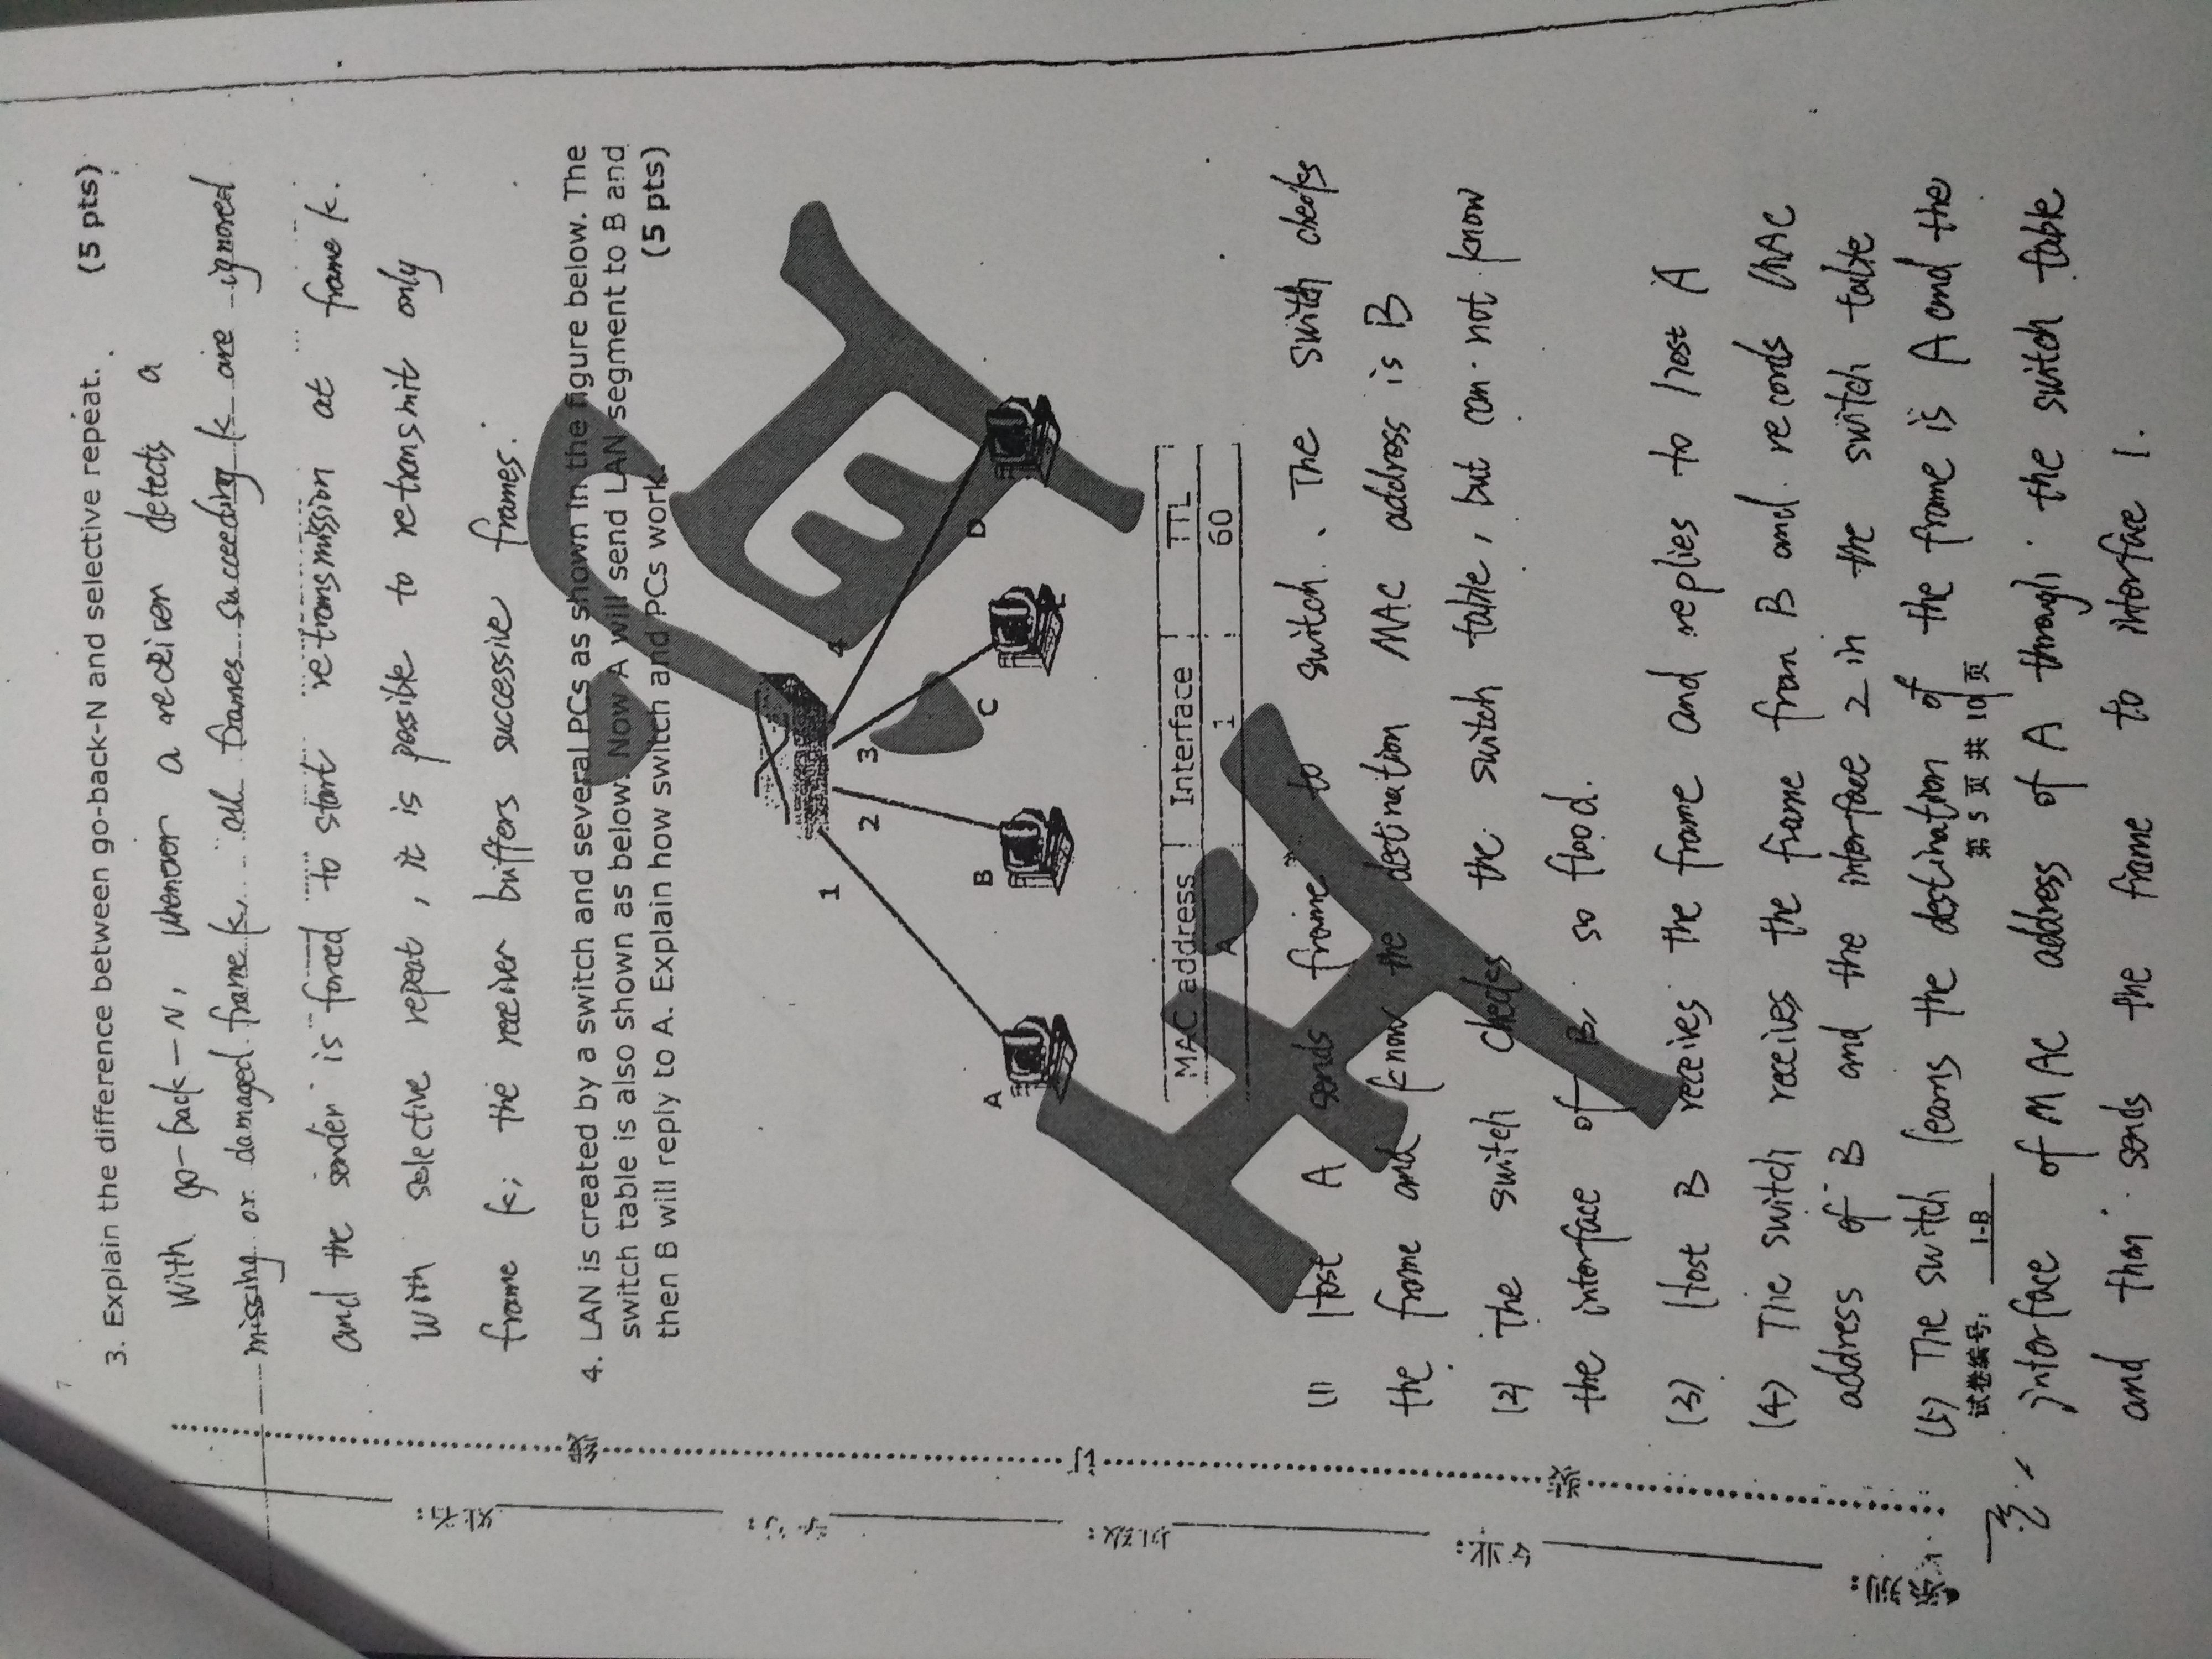 7
3. Explain the difference between go-back-N and selective repeat. (5 pts)
With go-back-N, whenever a receiver detects a
missing or damaged frame k, all frames succeeding k are ignored
and the sender is forced to start retransmission at frame k.
With selective repeat, it is possible to retransmit only
frame k; the receiver buffers successive frames.
4. LAN is created by a switch and several PCs as shown in the figure below. The
switch table is also shown as below. Now A will send LAN segment to B and
then B will reply to A. Explain how switch and PCs work. (5 pts)
1
2
3
4
A
B
C
D
MAC address Interface TTL
A 1 60
(1) Host A sends frame to switch. The switch checks
the frame and know the destination MAC address is B
(2) The switch checks the switch table, but can not know
the interface of B, so flood.
(3) Host B receives the frame and replies to Host A
(4) The switch receives the frame from B and records MAC
address of B and the interface 2 in the switch table
(5) The switch learns the destination of the frame is A and the
试卷编号: 1-B 第 5 页 共 10 页
interface of MAC address of A through the switch table
and then sends the frame to interface 1.
线
订
装
姓名:
学号:
班级:
专业:
系别: